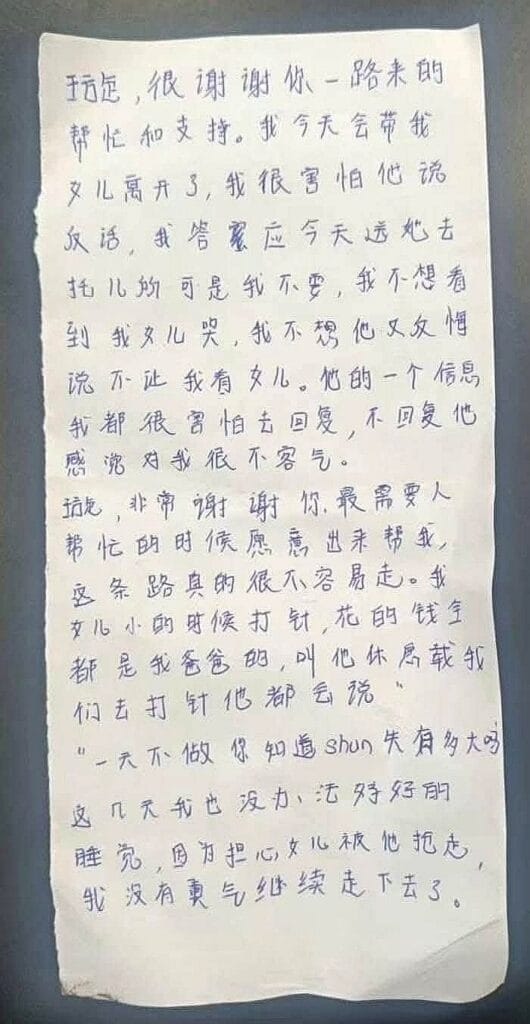 很谢谢你一路来的
帮忙和支持。我今天会带我
女儿离开了,我很害怕他说
反话,我答应今天送她去
托儿所可是我不要,我不想看
到我女儿哭,我不想他又反悔
说不让我看女儿。他的一个信息
我都很害怕去回复,不回复他
感觉对我很不客气。
非常谢谢你.最需要人
帮忙的时候愿意出来帮我,
这条路真的很不容易走。我
女儿小的时候打针,花的钱全
都是我爸爸的,叫他休息载我
们去打针他都会说"
"一天不做你知道shun失有多大吗
这几天我也没办法好好的
睡觉,因为担心女儿被他抢走,
我没有勇气继续走下去了。